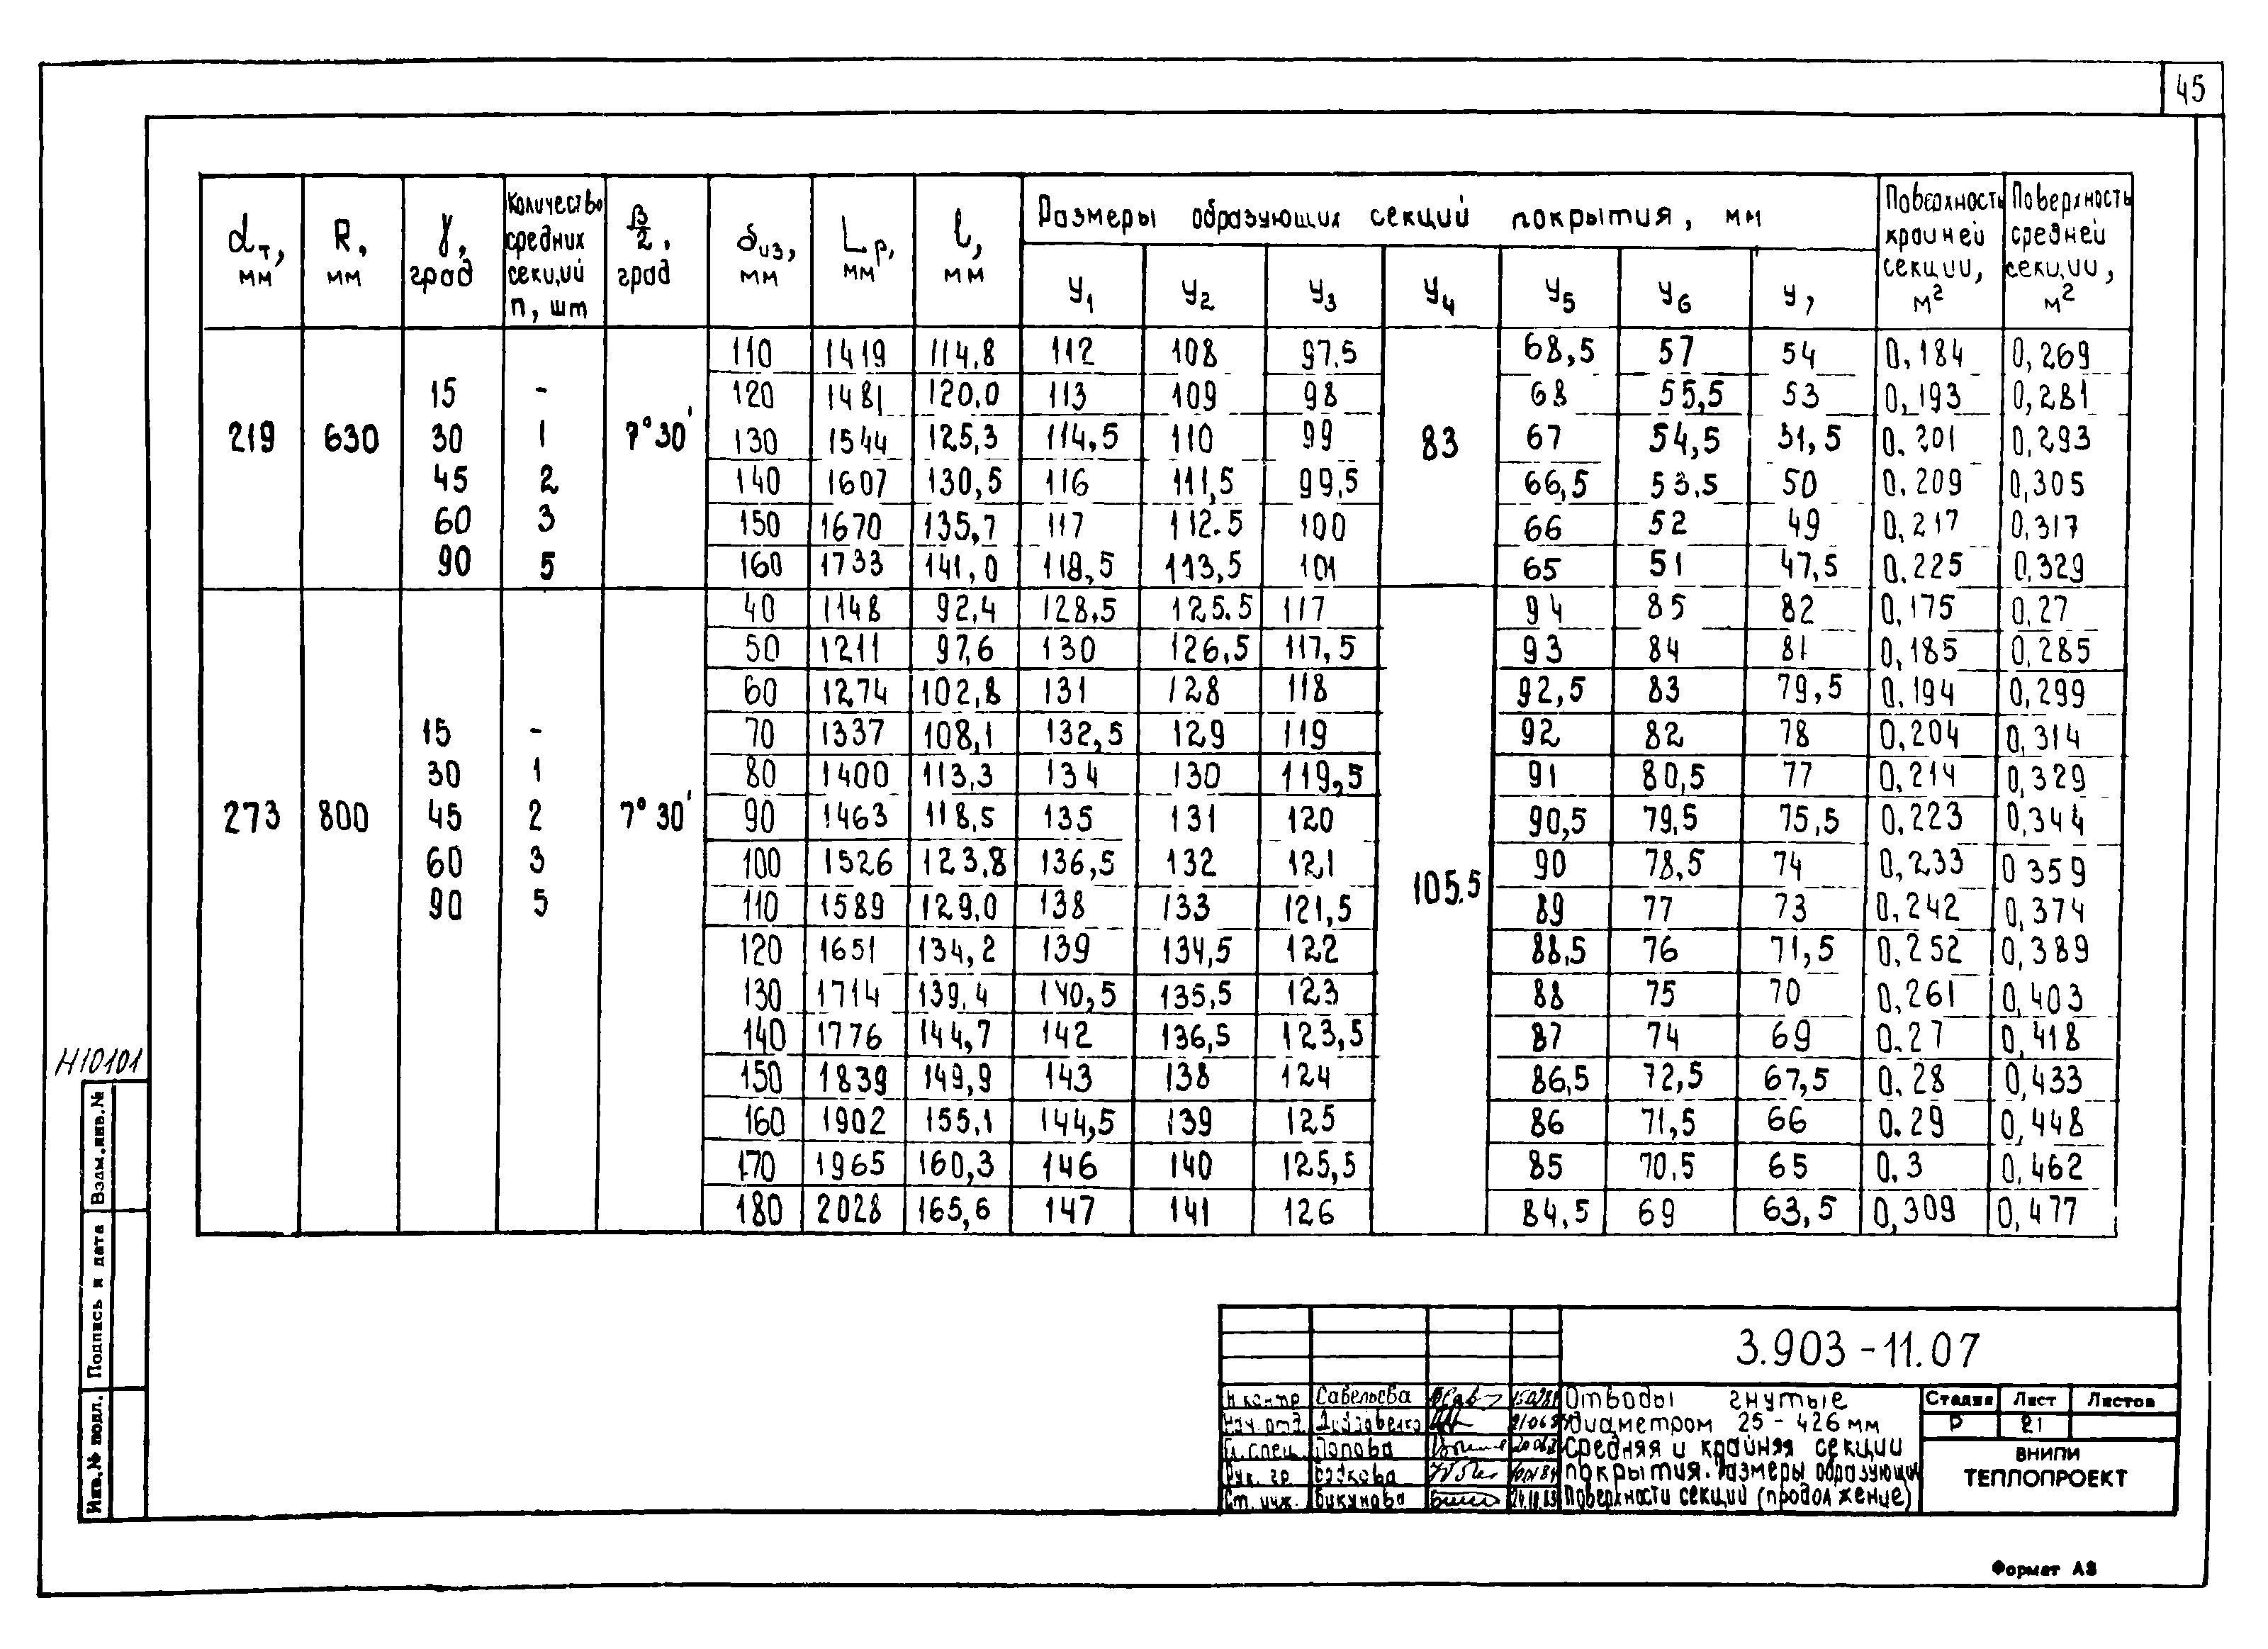 45
dт, мм
R, мм
γ, град
Количество средних секций n, шт
β/2, град
δиз, мм
Lр, мм
l, мм
Размеры образующих секций покрытия, мм
У1 У2 У3 У4 У5 У6 У7
Поверхность крайней секции, м2
Поверхность средней секции, м2
110 1419 114,8 112 108 97.5 68,5 57 54 0,184 0,269
15 - 120 1481 120,0 113 109 98 68 55,5 53 0,193 0,281
219 630 30 1 7°30' 130 1544 125,3 114,5 110 99 83 67 54,5 51,5 0.201 0,293
45 2 140 1607 130,5 116 111,5 99,5 66,5 53,5 50 0.209 0,305
60 3 150 1670 135,7 117 112.5 100 66 52 49 0,217 0,317
90 5 160 1733 141,0 118,5 113,5 101 65 51 47,5 0.225 0,329
40 1148 92,4 128,5 125.5 117 94 85 82 0,175 0,27
50 1211 97,6 130 126,5 117,5 93 84 81 0,185 0,285
60 1274 102,8 131 128 118 92,5 83 79,5 0,194 0,299
15 - 70 1337 108,1 132,5 129 119 92 82 78 0,204 0,314
30 1 80 1400 113,3 134 130 119,5 91 80,5 77 0,214 0,329
273 800 45 2 7°30' 90 1463 118,5 135 131 120 90,5 79,5 75,5 0,223 0,344
60 3 100 1526 123,8 136,5 132 121 90 78,5 74 0,233 0 359
90 5 110 1589 129,0 138 133 121,5 105.5 89 77 73 0,242 0,374
120 1651 134,2 139 134,5 122 88,5 76 71,5 0,252 0,389
130 1714 139,4 140,5 135,5 123 88 75 70 0,261 0,403
140 1776 144,7 142 136,5 123,5 87 74 69 0.27 0,418
150 1839 149,9 143 138 124 86,5 72,5 67,5 0.28 0,433
160 1902 155,1 144,5 139 125 86 71,5 66 0.29 0,448
170 1965 160,3 146 140 125,5 85 70,5 65 0.3 0,462
180 2028 165,6 147 141 126 84,5 69 63,5 0,309 0,477
Н10101
Взам.инв.№
Подпись и дата
Инв.№ подл.
3.903-11.07
Н контр Савельева
Нач. отд.
Гл. спец. Попова
Рук. гр
Ст. инж.
Отводы гнутые
диаметром 25-426 мм
Средняя и крайняя секции
покрытия. Размеры образующих
Поверхности секций (продолжение)
Стадия Лист Листов
Р 21
ВНИПИ
ТЕПЛОПРОЕКТ
Формат А3